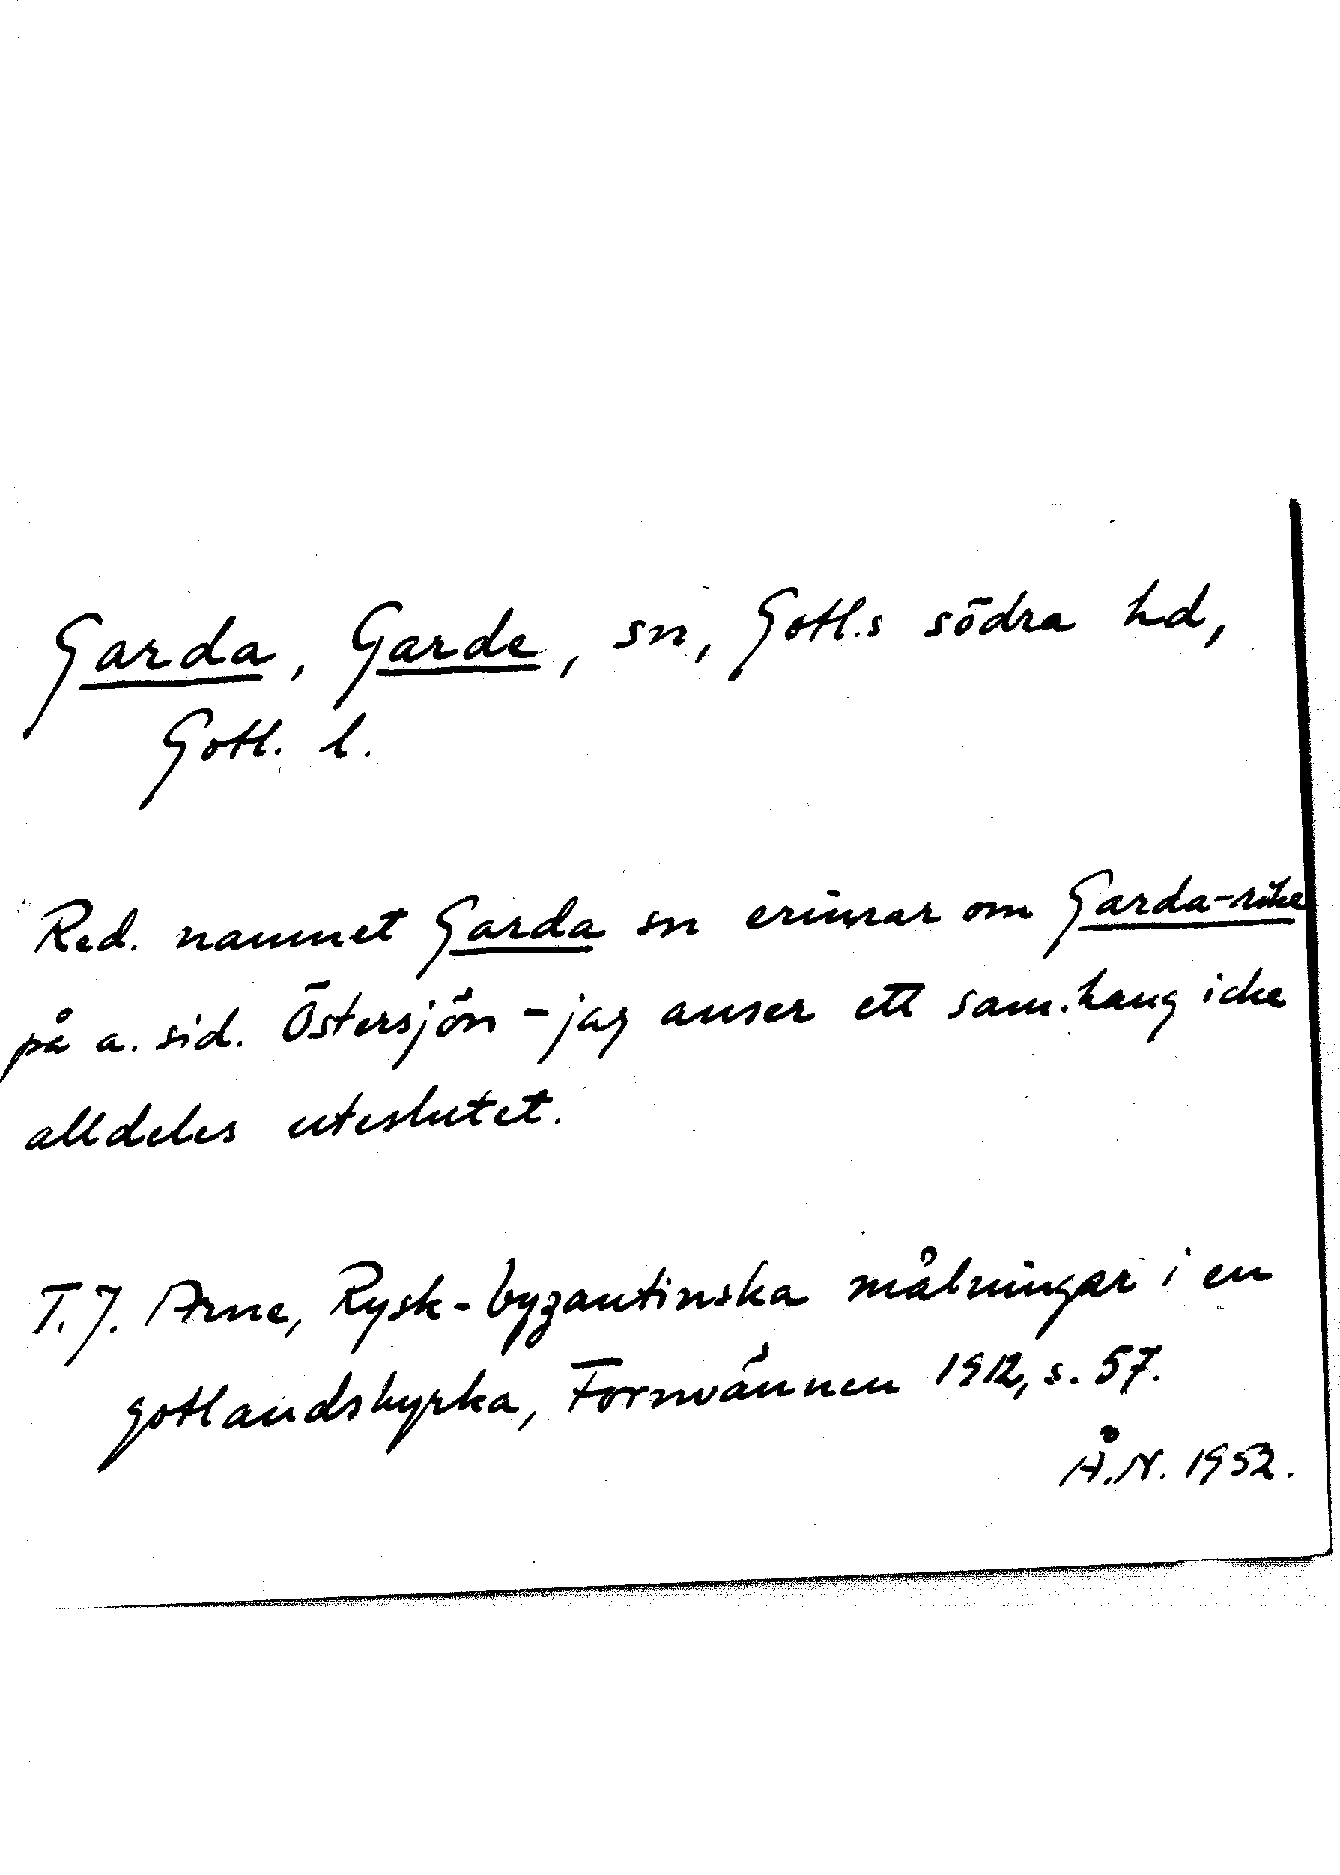 Garda, Garde, sn, Gotl.s södra hd,
Gotl. l.
Red. namnet Garda sn erinrar om Garda-rike
på a. sid. Östersjön - jag anser ett sam.hang icke
alldeles uteslutet.
T.J. Arne, Rysk-byzantinska målningar i en
gotlandskyrka, Fornvännen 1912, s. 57.
Å.N. 1952.